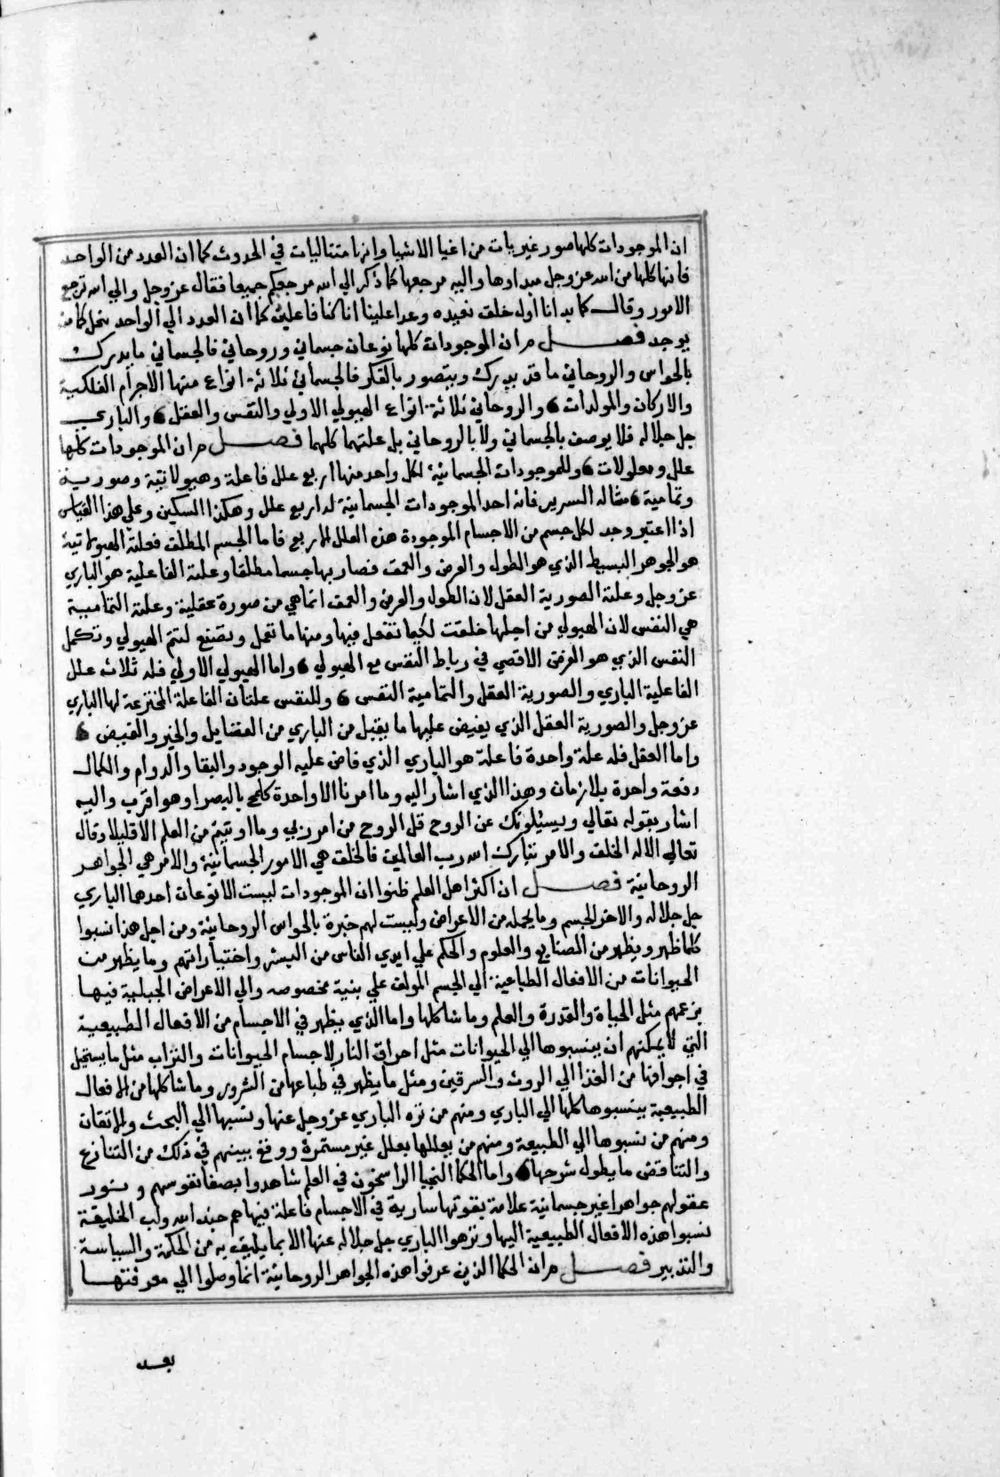 ان الموجودات كلها صور غيريات من اغيا الاشيا وانها متتاليات في الحدوث كما ان العدد من الواحد
فانها كلها من الله عز وجل مبداوها واليه مرجعها كما ذكر الي الله مرجعكم جميعا فقال عز وجل والي الله ترجع
الامور وقال كما بدانا اول خلق نعيده وعدا علينا انا كنا فاعلين كما ان العدد الي الواحد ينحل كما منه
يوجد فصل من ان الموجودات كلها نوعان جسماني وروحاني فالجسماني ما يدرك
بالحواس والروحاني ما قد يدرك ويتصور بالفكر فالجسماني ثلاثة انواع منها الاجرام الفلكية
والاركان والمولدات والروحاني ثلاثة انواع الهيولي الاولي والنفس والعقل والباري
جل جلاله فلا يوصف بالجسماني ولا بالروحاني بل علتهما كلهما فصل من ان الموجودات كلها
علل ومعلولات وللموجودات الجسمانية لكل واحد منها اربع علل فاعلة وهيولانية وصورية
وتمامية مثاله السرير فانه احد الموجودات الجسمانية له اربع علل وهكذا السكين وعلي هذا القياس
اذا اعتبر وجد لكل جسم من الاجسام الموجودة هذه العلل الاربع فاما الجسم المطلق فعلته الهيولانية
هو الجوهر البسيط الذي هو الطول والعرض والعمق فصار بها جسما مطلقا وعلته الفاعلية هو الباري
عز وجل وعلته الصورية العقل لان الطول والعرض والعمق انما هي من صورة عقلية وعلته التمامية
هي النفس لان الهيولي من اجلها خلقت لكيما تفعل فيها ومنها ما تعمل وتصنع لتتم الهيولي وتكمل
النفس الذي هو الغرض الاقصي في رباط النفس مع الهيولي واما الهيولي الاولي فله ثلاث علل
الفاعلية الباري والصورية العقل والتمامية النفس وللنفس علتان الفاعلة المخترعة لها الباري
عز وجل والصورية العقل الذي يفيض عليها ما يقبل من الباري من الفضايل والخير والفيض
واما العقل فله علة واحدة فاعلة هو الباري الذي فاض عليه الوجود والبقا والدوام والكمال
دفعة واحدة بلا زمان وهذا الذي اشار اليه وما امرنا الا واحدة كلمح بالبصر او هو اقرب واليه
اشار بقوله تعالي ويسئلونك عن الروح قل الروح من امر ربي وما اوتيتم من العلم الا قليلا وقال
تعالي الا له الخلق والامر تبارك الله رب العالمين فالخلق هي الامور الجسمانية والامر هي الجواهر
الروحانية فصل ان اكثر اهل العلم ظنوا ان الموجودات ليست الا نوعان احدهما الباري
جل جلاله والاخر الجسم وما يحله من الاعراض وليست لهم خبرة بالحواس الروحانية ومن اجل هذا نسبوا
كلما ظهر ويظهر من الصنايع والعلوم والحكم علي ايدي الناس من البشر واختياراتهم وما يظهر من
الحيوانات من الافعال الطباعية الي الجسم المولف علي بنية مخصوصه والي الاعراض الجبلية فيها
بزعمهم مثل الحياة والقدرة والعلم وما شاكلها واما الذي يظهر في الاجسام من الافعال الطبيعية
التي لا يمكنهم ان ينسبوها الي الحيوانات مثل احراق النار لاجسام الحيوانات والتراب مثل ما يستحيل
في اجوافها من الغذا الي الروث والسرقين ومثل ما يظهر في طباعها من الشرور وما شاكلها من الافعال
الطبيعية ينسبوها كلها الي الباري ومنهم من نزه الباري عز وجل عنها ونسبها الي البحث والاتقان
ومنهم من نسبوها الي الطبيعة ومنهم من يعللها بعلل غير مستمرة ووقع بينهم في ذلك من التنازع
والتناقض ما يطول شرحها واما الحكما النجبا الراسخون في العلم شاهدوا بصفا نفوسهم ونور
عقولهم جواهرا غير جسمانية علامة بقوتها سارية في الاجسام فاعلة فيها هم جند الله ولب الخليقة
نسبوا هذه الافعال الطبيعية اليها ونزهوا الباري جل جلاله عنها الا بما يليق به من الحكمة والسياسة
والتدبير فصل من ان الحكما الذين عرفوا هذه الجواهر الروحانية انما وصلوا الي معرفتها
بعد